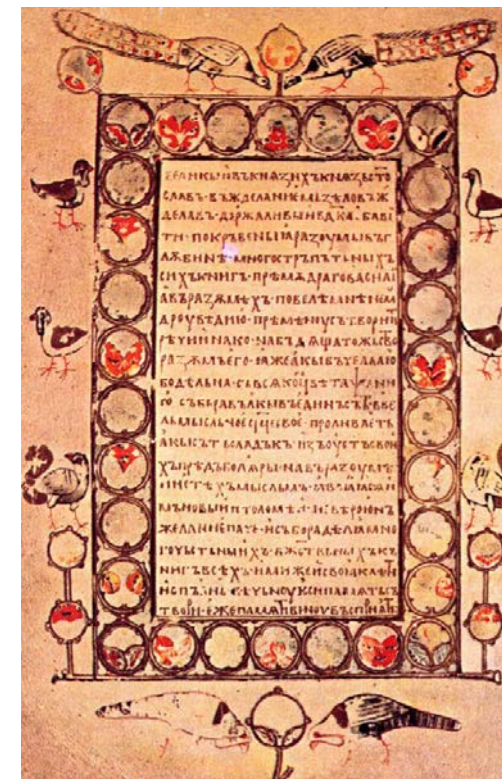 ВЕЛИКЫИ ВЪ КНѦЗИХЪ КНѦЗЬ СТО
СЛАВЪ · ВЪЖДЕЛАНИЕМЬ ЗѢЛО ВЪЖ
ДЕЛАВЪ · ДЬРЖАЛИВЫИ ВЛДКА · ОБАВИ
ТИ · ПОКРЪВЕНЫѨ РАЗОУМЫ ВЪ Г
ЛѪБИНѢ МНОГОСТРЪПЪТЬНЫХЪ
СИХЪ КНИГЪ · ПРѢМѪДРАГО ВАСИЛ
А ВЪ РАЗУМѢХЪ · ПОВЕЛѢ МЬНѢ НЕМ
ДРОУВѢДИЮ · ПРѢМѢНУ СЪТВОРИ
РѢЧИ ИНАКО · НАБЪДѦЩА ТОЖЬСВО
РАЗУМЪ ЕГО · ꙖЖЕ АКЫ БЪЧЕЛА ЛЮ
БОДѢЛЬНА · СЪ ВСѦКОГО ЦВѢТА
СЪБЬРАВЪ АКЫ ВЪ ЕДИНЪ СЪТЪ · ВЪ ВЕ
ЛЬМЫСЛЬНОЕ СРДЦЕ СВОЕ · ПРОЛИВАЕТЬ
АКЫ СЪТЪ СЛАДЪКЪ · ИЗЪ ОУСТЪ СВОИ
ХЪ ПРѢДЪ БОЛѦРЫ · НА ВЪРАЗОУМѢ
НИЕ ТѢХЪ МЫСЛЬМЪ ·
НОВЫИ ПТОЛОМѢИ · НЕ ВѢРОЮ Н
ЖЕЛАНИЕМЬ ПАЧЕ · И СЪБОРА ДѢЛЯ МНО
ГОЧЬСТЬНЫИХЪ · БЖСТВЬНЫХЪ К
НИГЪ ВСѢХЪ · ИМИЖЕ И СВОѨ КЛѢТИ
ИСПЪЛНЬ ВѢЧЬНУЮ СИ ПАМѦТЬ СЪ
ТВОРИ · ЕЖЕ ПАМѦТИ ВИНОУ ВЪСПРИѨТИ